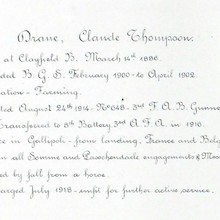 Drane, Claude Thompson.
at Clayfield B. March 16th 1886.
ded B. G. S. February 1900 - to April 1902.
ation - Farming.
ted August 24th 1914. No 646 - 3rd F. A. B. Gunne
Transferred to 8th Battery 3rd A. F. A. in 1916.
ce in Gallipoli - from landing, France and Belg
n all Somme and Passchendaele engagements & Mes
ed by fall from a horse.
arged July 1919 - unfit for further active service.